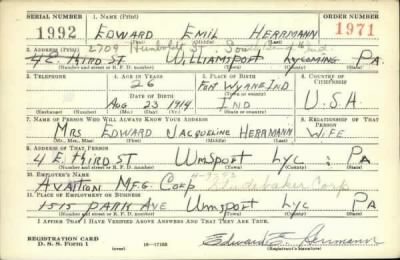 SERIAL NUMBER 1. NAME (Print) ORDER NUMBER
1992 EDWARD EMIL HERRMANN 1971
(First) (Middle) (Last)
2. ADDRESS (Print) 2709 Humboldt St. South Bend Ind.
4 E. THIRD ST WILLIAMSPORT LYCOMING PA
(Number and street or R. F. D. number) (Town) (County) (State)
3. TELEPHONE 4. AGE IN YEARS 5. PLACE OF BIRTH 6. COUNTRY OF CITIZENSHIP
26 FORT WYANE IND
DATE OF BIRTH
AUG 23 1914 IND U.S.A.
(Mo.) (Day) (Yr.)
7. NAME OF PERSON WHO WILL ALWAYS KNOW YOUR ADDRESS 8. RELATIONSHIP OF THAT PERSON
MRS EDWARD JACQUELINE HERRMANN WIFE
(Mr., Mrs., Miss) (First) (Middle) (Last)
9. ADDRESS OF THAT PERSON
4 E. THIRD ST WMSPORT LYC. PA
(Number and street or R. F. D. number) (Town) (County) (State)
10. EMPLOYER'S NAME
AVATION MFG. CORP Studebaker Corp
11. PLACE OF EMPLOYMENT OR BUSINESS
1515 PARK AVE WMSPORT LYC PA
(Number and street or R. F. D. number) (Town) (County) (State)
I AFFIRM THAT I HAVE VERIFIED ABOVE ANSWERS AND THAT THEY ARE TRUE.
REGISTRATION CARD
D. S. S. FORM 1 (over) 16-17105 Edward E. Herrmann
(Registrant's signature)